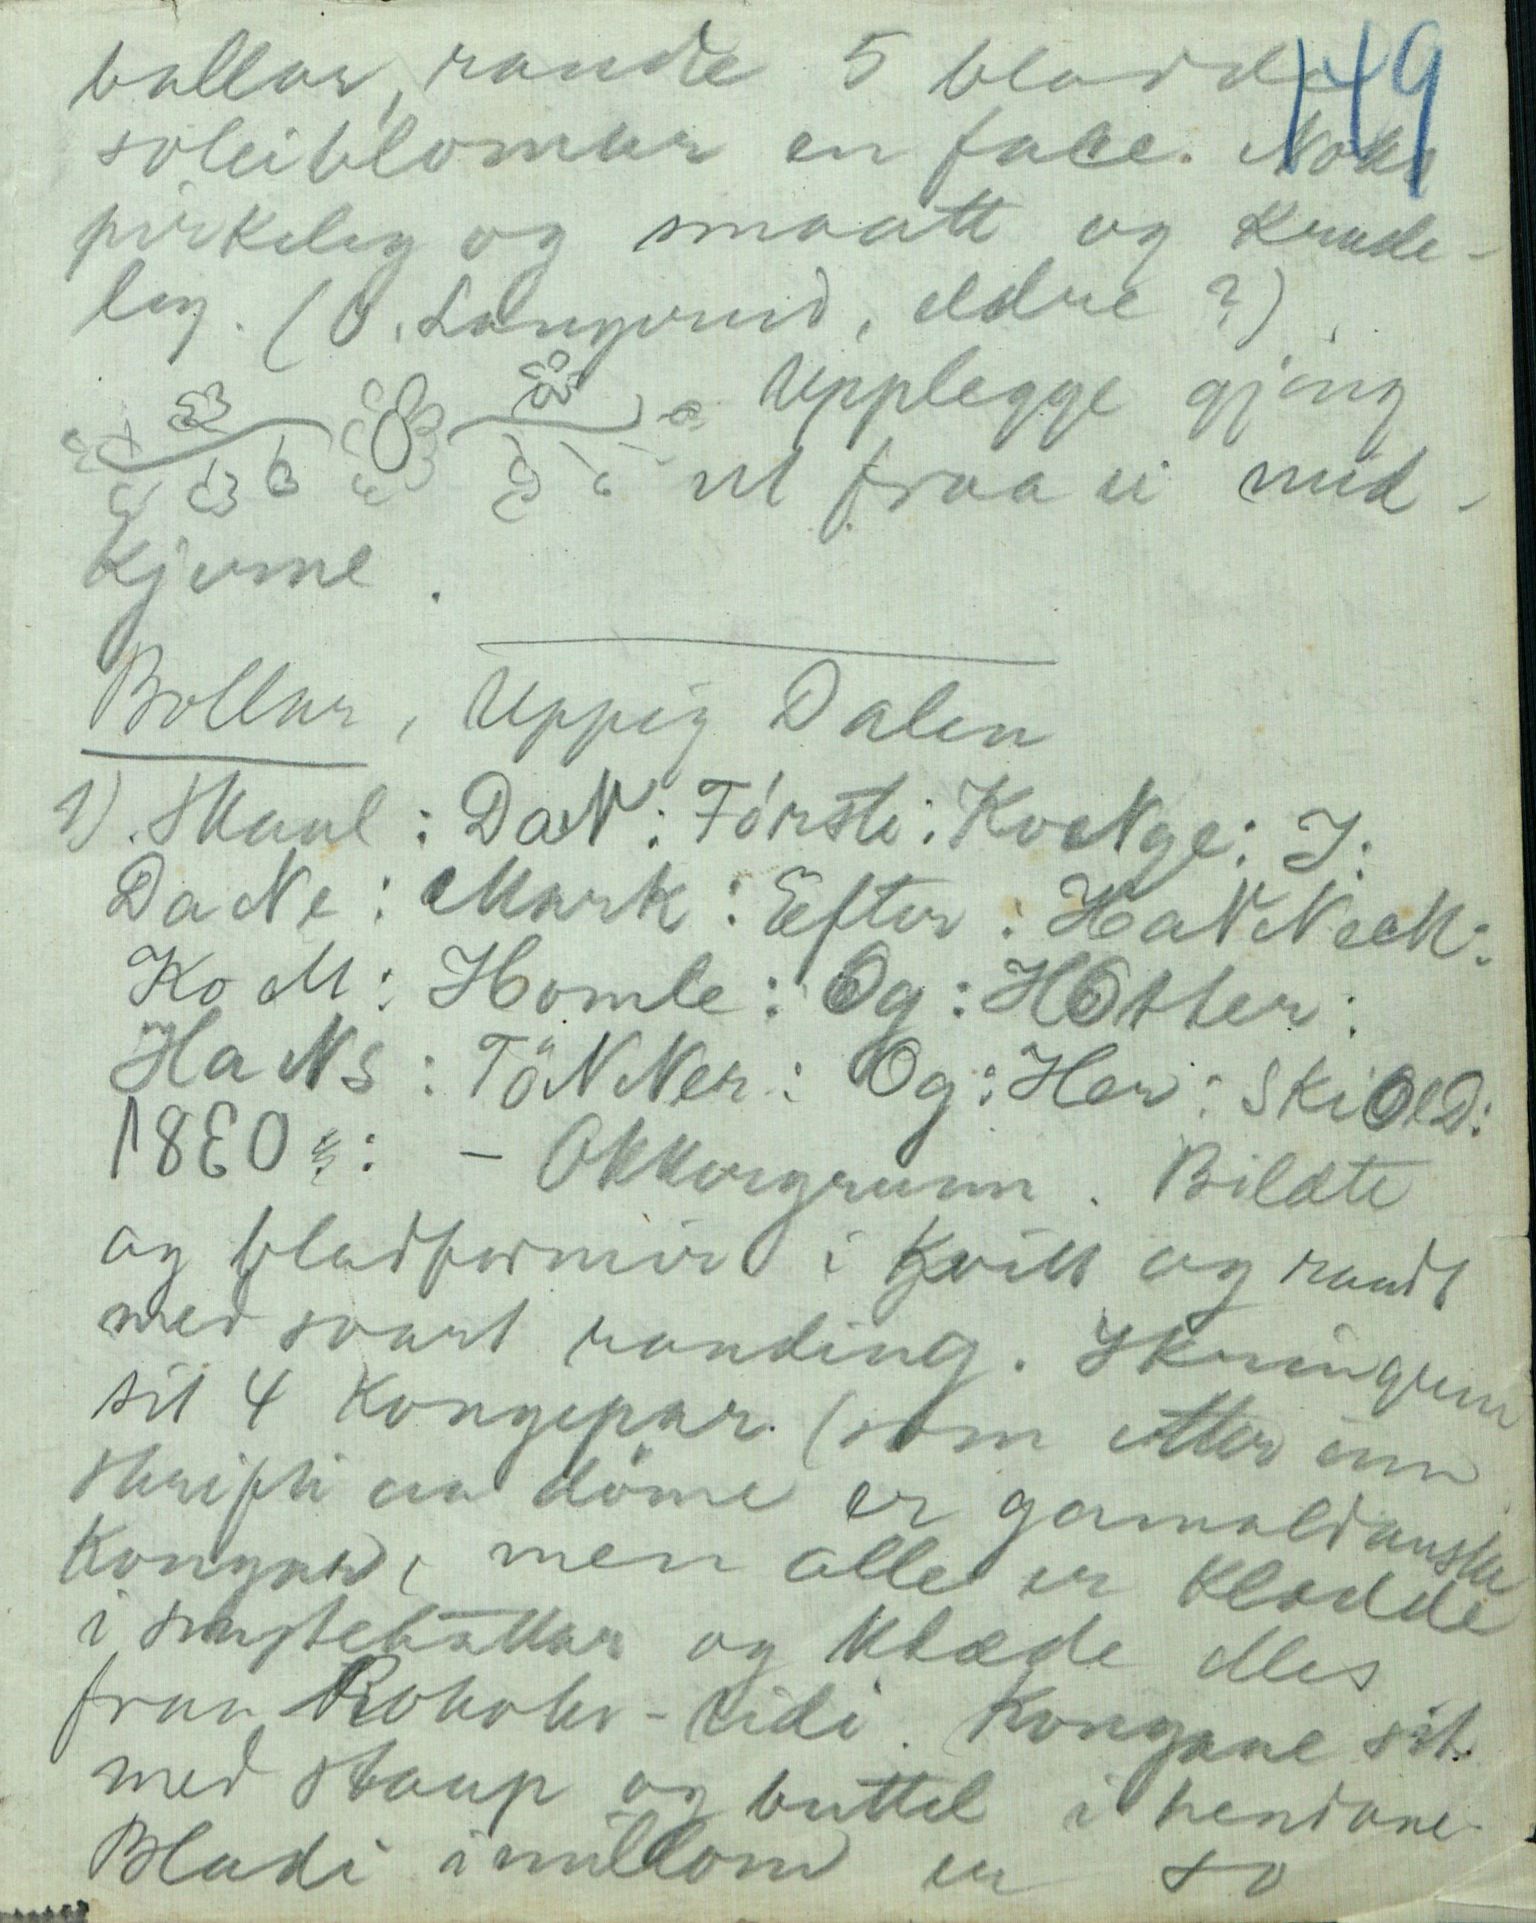 149
ballar, rande 5 bladda
soleiblomar en face. Noko
pirkeleg og smaatt og krude-
leg. (O. Langerud, eldre?)
Upplegge gjeng
ut fraa ei mid-
kjerne.
Bollar, Uppig Dalen
1). Skaal: DaN: Förste: KoNge: I:
DaNe: Mark: Efter: HaNNeM:
KoM: Homle: Og: HOtter:
HaNs: TöNNer: Og: Her: SkiOlD:
1830: - Okkergrunn. Bildte
og bladformir i kvitt og raudt
med svart randing. Ikringum
sit 4 Kongepar (som etter inn
skrifti aa döme er gamaldanske
Kongar, men alle er kledde
i snustehattar og klæde elles
fraa Rokoko-tidi. Kongane sit
med staup og buttel i hendane
Bladi imillom er so